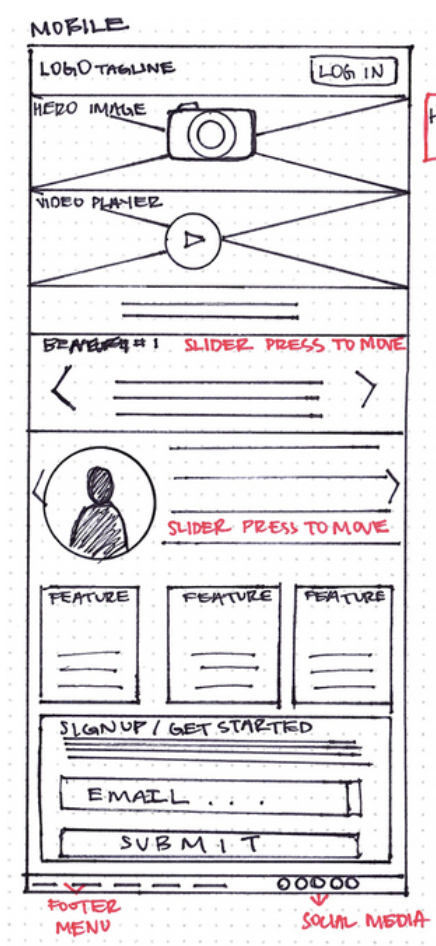 MOBILE
LOGO TAGLINE
LOG IN
HERO IMAGE
H
VIDEO PLAYER
#1 SLIDER PRESS TO MOVE
SLIDER PRESS TO MOVE
FEATURE FEATURE FEATURE
SIGN UP / GET STARTED
EMAIL . . .
SUBMIT
FOOTER
MENU
SOCIAL MEDIA